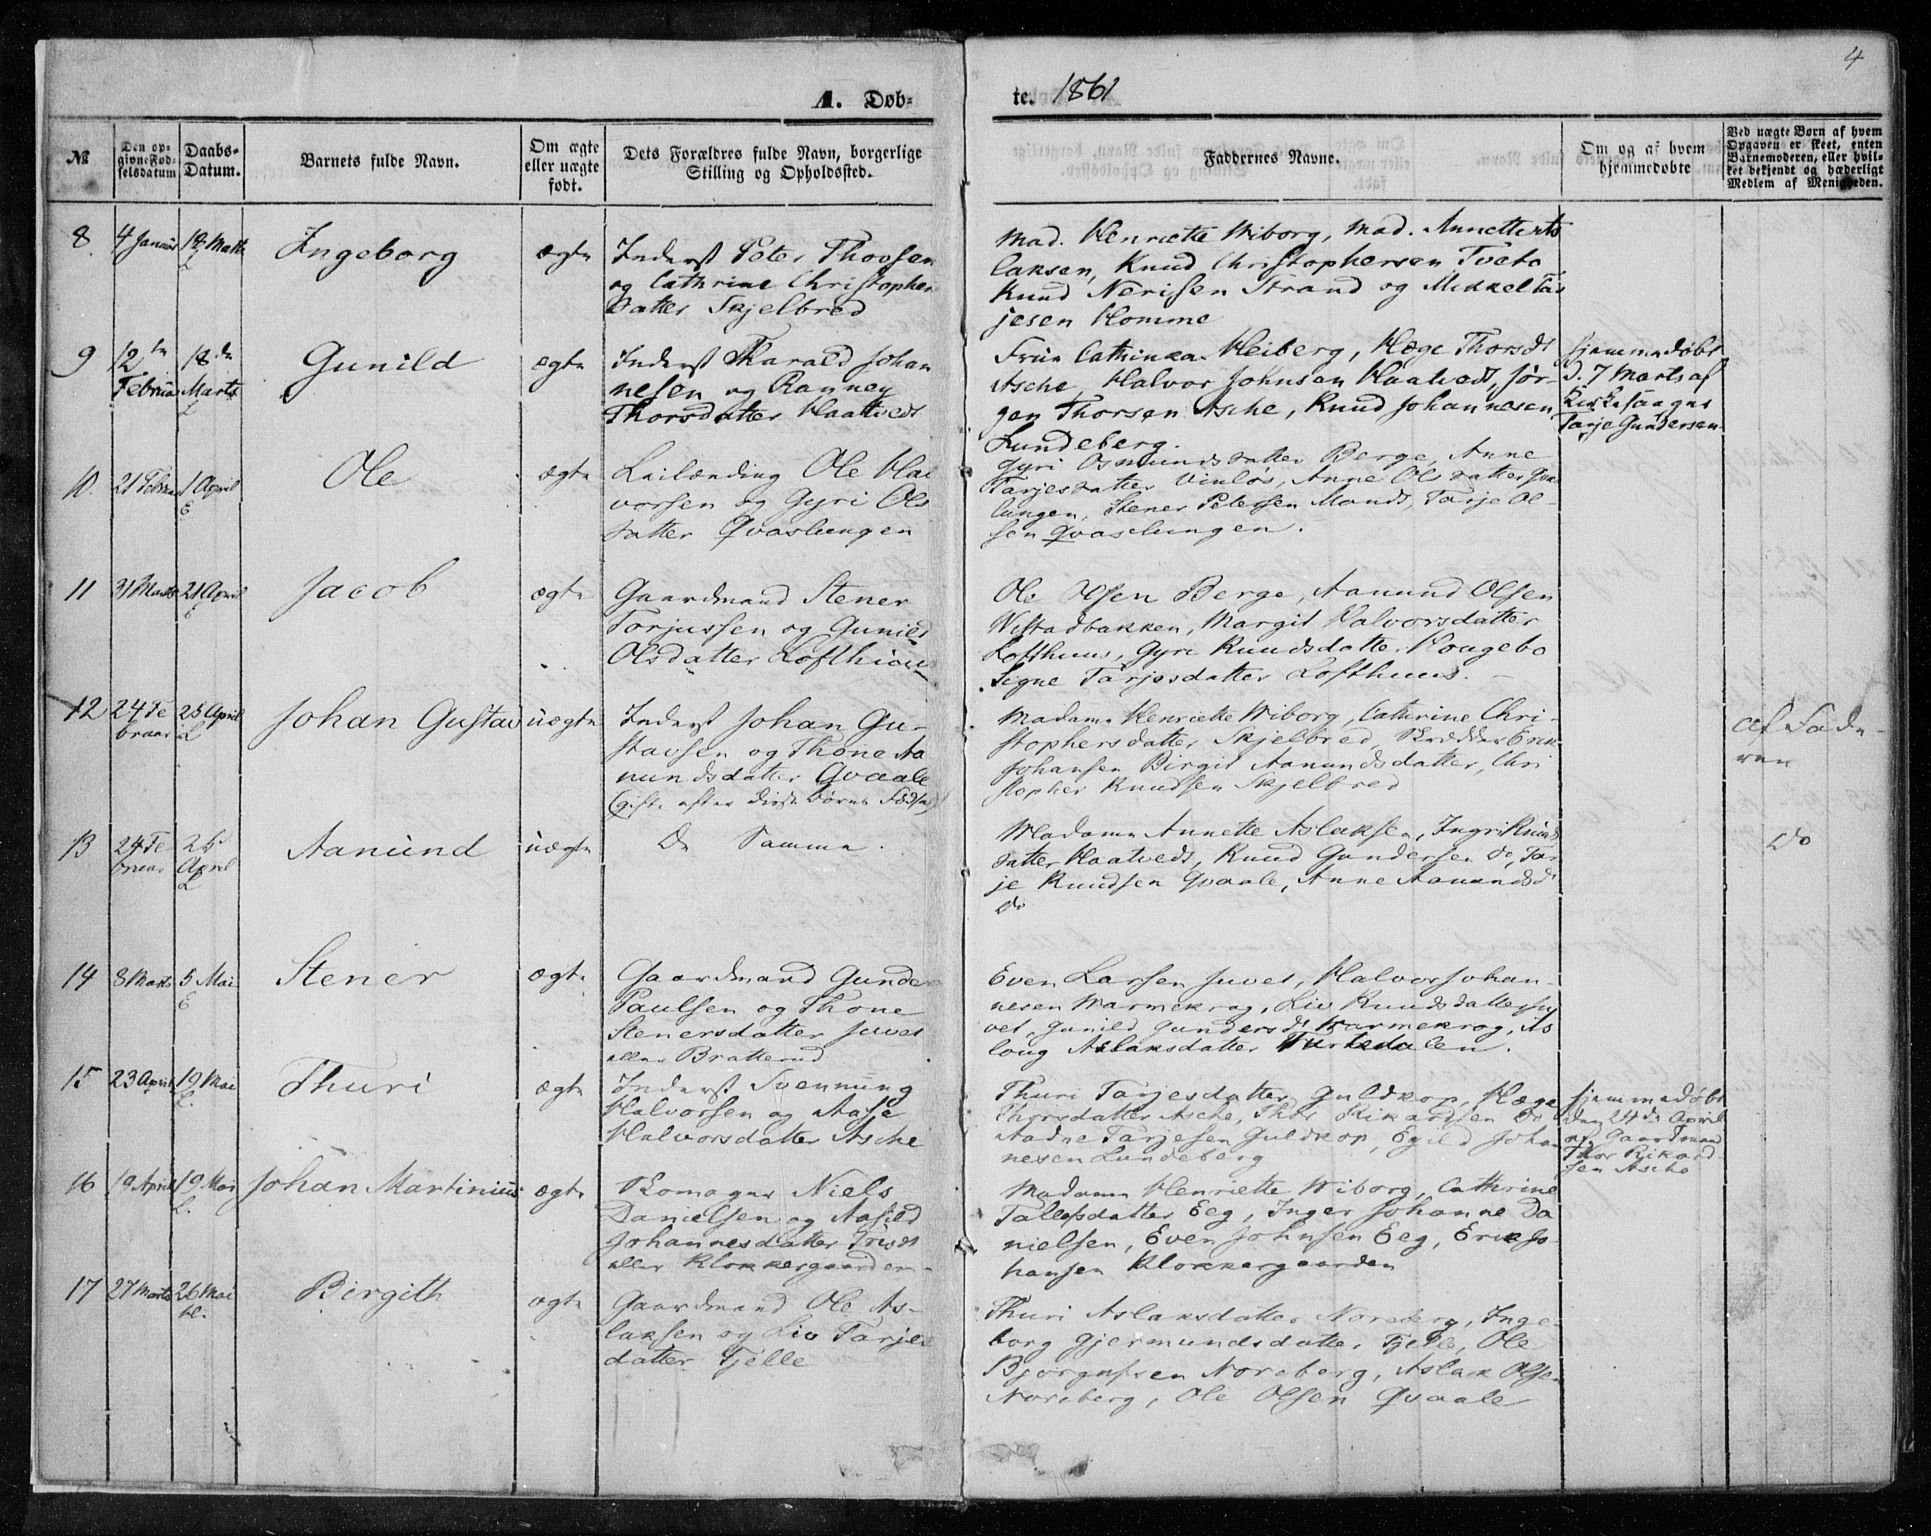 4
A. Døb-
te. 1861
№
Den op-
givne Fød-
selsdatum
Daabs-
Datum.
Barnets fulde Navn.
Om ægte
eller uægte
født.
Dets Forældres fulde Navn, borgerlige
Stilling og Opholdssted.
Faddernes Navne.
Om og af hvem
hjemmedøbte
Ved uægte Børn af hvem
Opgaven er skeet, enten
Barnemoderen, eller hvil-
ket bekjendt og hæderligt
Medlem af Menigheden.
8
4 Januar
18 Marts
L
Ingeborg
ægte
Inderst Peter Thovsen
og Cathrine Christopher
datter Skjelbred
Mad. Henriette Wiborg, Mad. Annette As
laksen, Knud Christophersen Tveto
Knud Nerisen Strand og Mikkel Tar
jesen Homme
9
12te
Februar
18de
Marts
L
Gunild
ægte
Inderst Harald Johan
nesen og Ranney
Thorsdatter Haatvedt
Frue Cathinka Heiberg, Hæge Thorsd
Asche, Halvor Johnsen Haatvedt, Jør-
gen Thorsen Asche, Knud Johannesen
Lundeberg.
hjemmedøbt
d. 7 Marts af
Kirkesanger
Tarje Gundersen
10.
21 Febru
1 April
E
Ole
ægte
Leilænding Ole Hal
vorsen og Gyri Ols
datter Qvaslungen
Gyri Osmundsdatter Berge, Anne
Tarjesdatter Vinløs, Anne Olsdatter Qvas
lungen, Stener Petersen Mandt, Tarje Ol-
sen Qvaslungen.
11
31 Marts
21 April
E
Jacob
ægte
Gaardmand Stener
Torjussen og Gunild
Olsdatter Lofthuus
Ole Olsen Berge, Aanund Olsen
Nistadbakken, Margit Halvorsdatter
Lofthuus, Gyri Knudsdatter Haugebo
Signe Tarjesdatter Lofthuus.
12
24 Fe
bruar
25 April
L
Johan Gustav
uægte
Inderst Johan Gu-
stavsen og Thone Aa
nundsdatter Qvaale
(gifte efter disse Børns Fødsel)
Madame Henriette Wiborg, Cathrine Chri-
stophersdatter Skjelbred, Skrædder Erik
Johansen Birgit Aanundsdatter, Chri
stopher Knudsen Skjelbred
af Fade-
ren
13
24 Fe
bruar
25
April
L
Aanund
uægte
De Samme.
Madame Annette Aslaksen, Ingri Knuds
datter Haatvedt, Knud Gundersen do, Tar
je Knudsen Qvaale, Anne Aanundsd
do
Do
14
8 Marts
5 Mai
E
Stener
ægte
Gaardmand Gunder
Paulsen og Thone
Stenersdatter Juvet
eller Bratterud
Even Larsen Juvet, Halvor Johan-
nesen Warmekrog, Liv Knudsdatter Ju
vet, Gunild Gundersd Warmekrog, As
loug Aslaksdatter Turtedalen.
15
23 April
19 Mai
L.
Thuri
ægte
Inderst Svennung
Halvorsen og Aase
Halvorsdatter Asche
Thuri Tarjesdatter Guldkop, Hæge
Thorsdatter Asche, Thor Rikardsen do
Aadne Tarjesen Guldkop, Egild Johan
nesen Lundeberg
hjemmedøbt
den 24de April
af Gaardmand
Thor Rikard
sen Asche
16
19 April
19 Mai
L.
Johan Martinius
ægte
Skomager Niels
Danielsen og Aasild
Johannesdatter
eller Klokkergaarden
Madame Henriette Wiborg, Cathrine
Tallefsdatter Eeg, Inger Johanne Da
nielsen, Even Johnsen Eeg, Erik Jo-
hansen Klokkergaarden
17
27 Marts
26 Mai
Birgith
ægte
Gaardmand Ole As-
laksen og Liv Tarjes
datter Tjelle
Thuri Aslaksdatter Noreberg, Inge-
borg Gjermundsdatter Tjelle, Ole
Bjørgufsen Noreberg, Aslak Olsen
Noreberg, Ole Olsen Qvaale